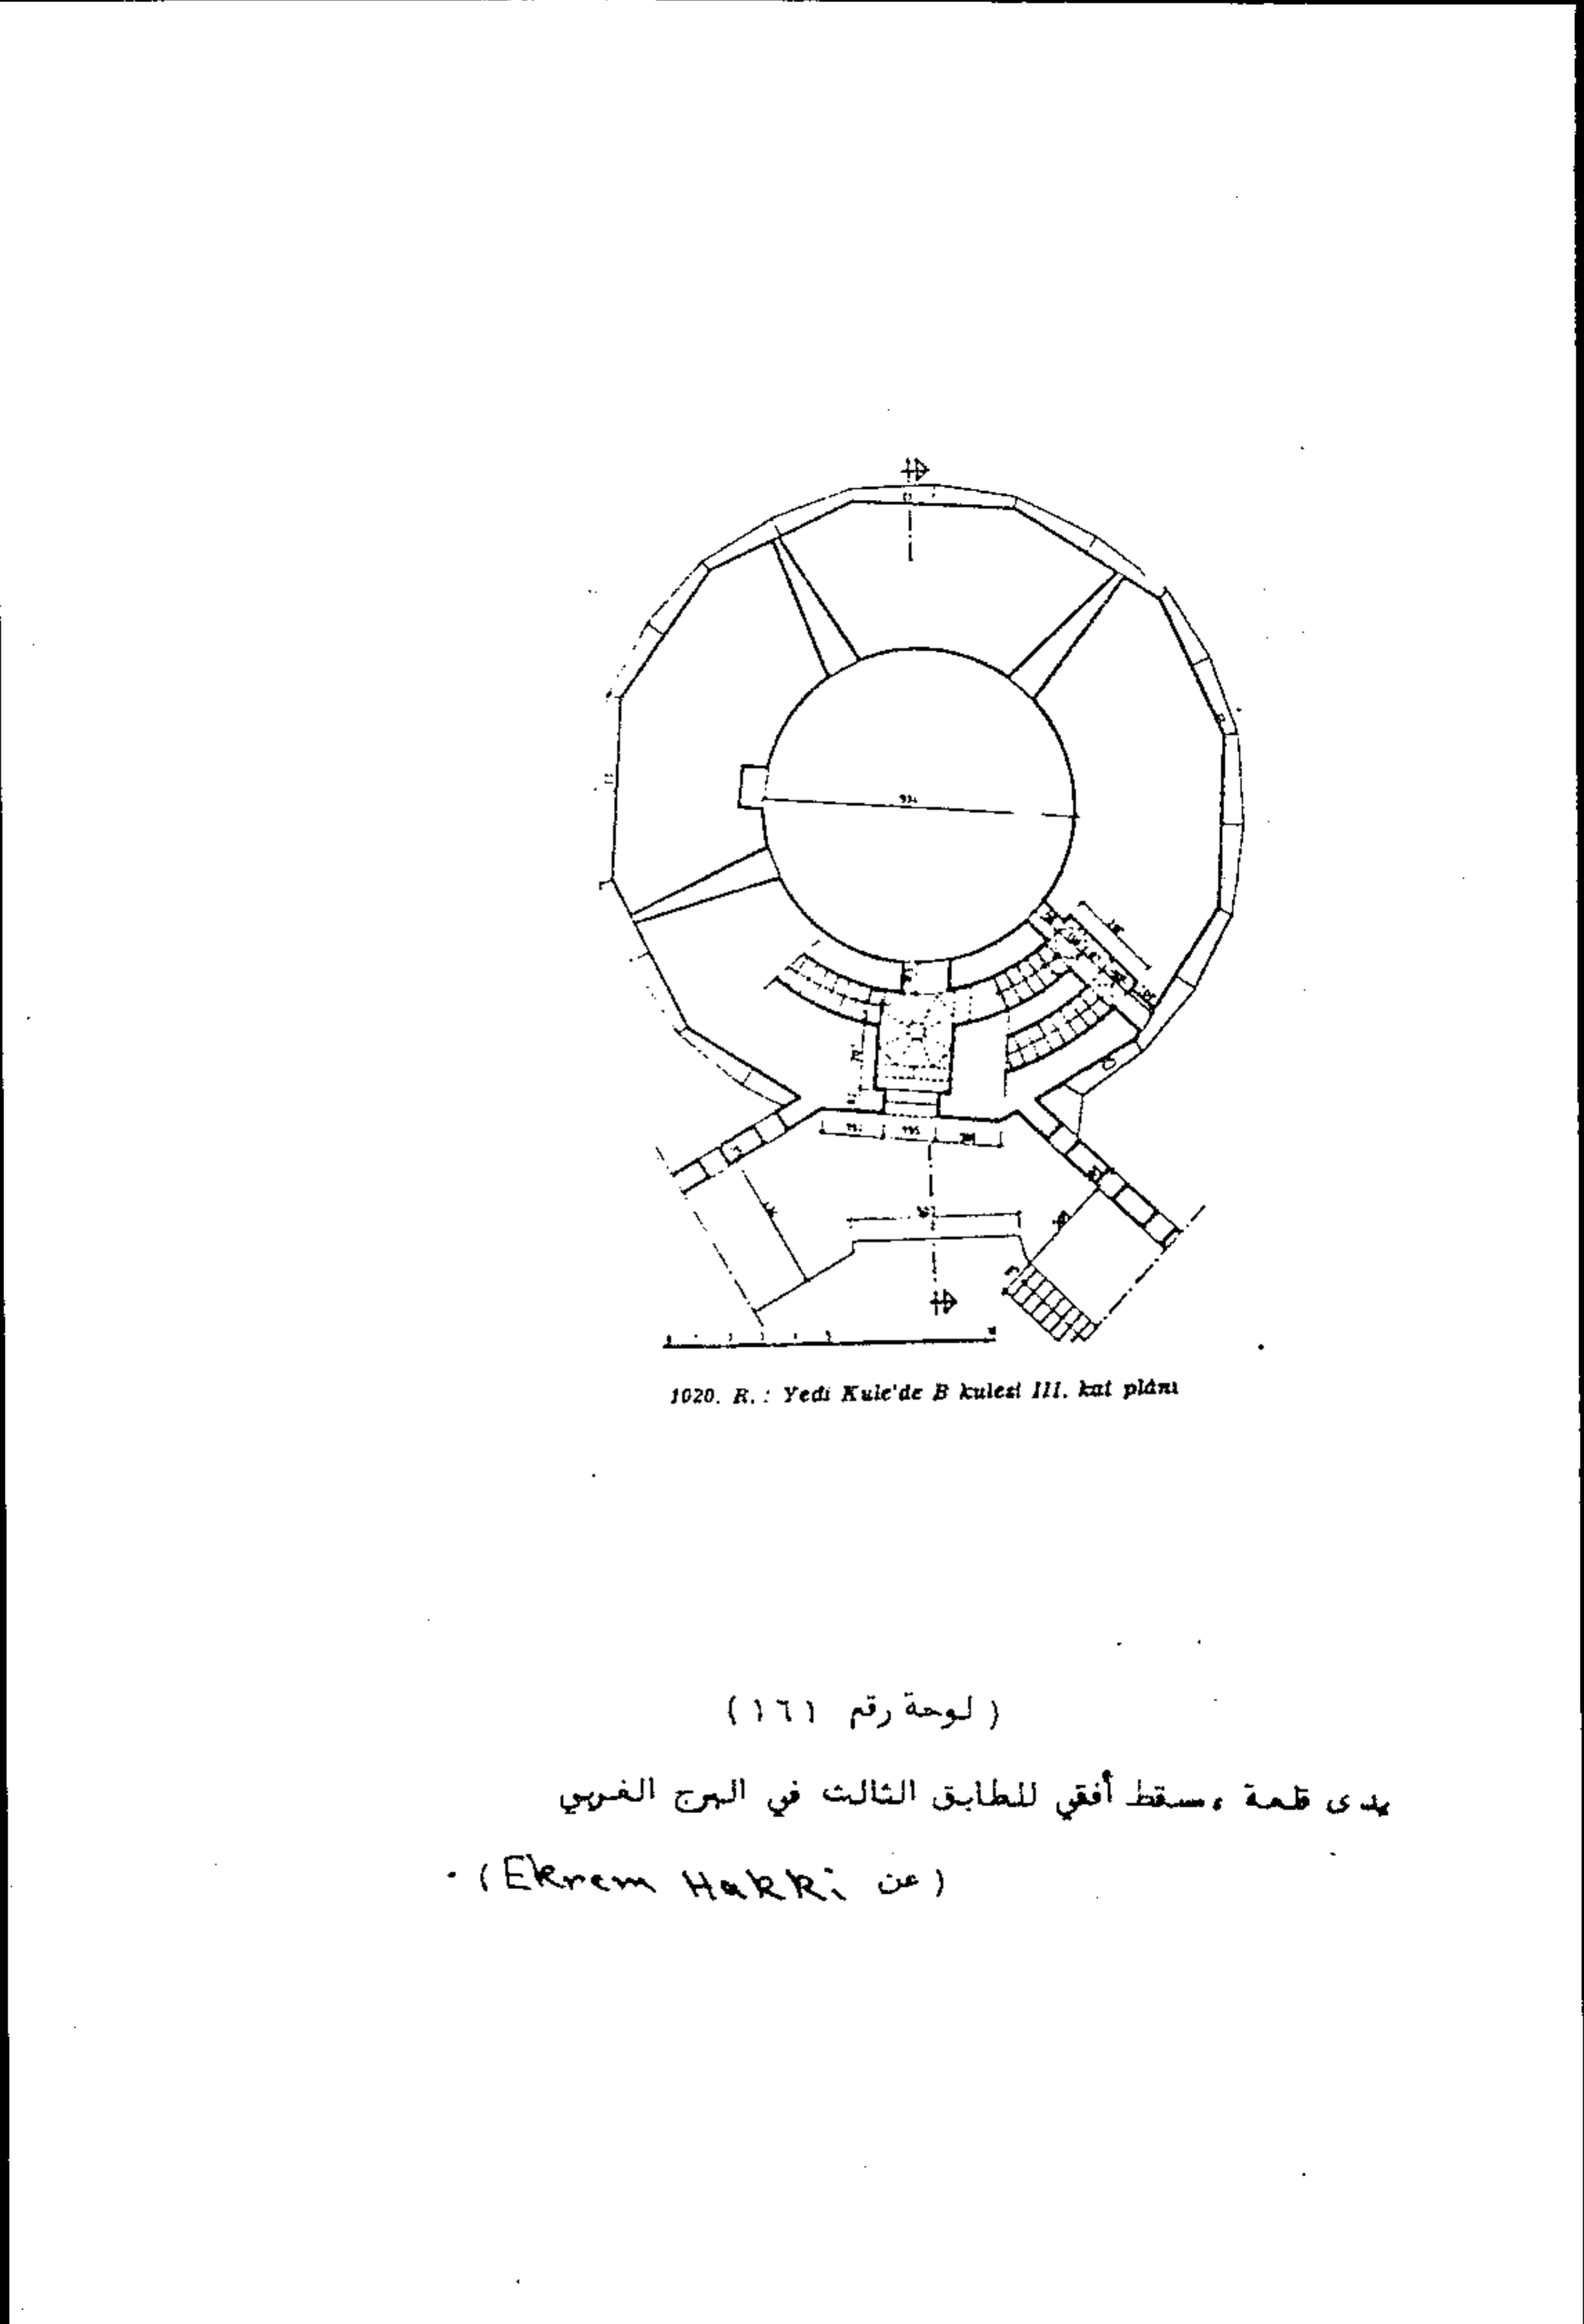 1020. R. : Yedi Kule'de B kulesi III. kat plânı
(لوحة رقم ١٦١)
يدى قلعة ، مسقط أفقي للطابق الثالث في البرج الغربي
(عن Ekrem Hakki) .